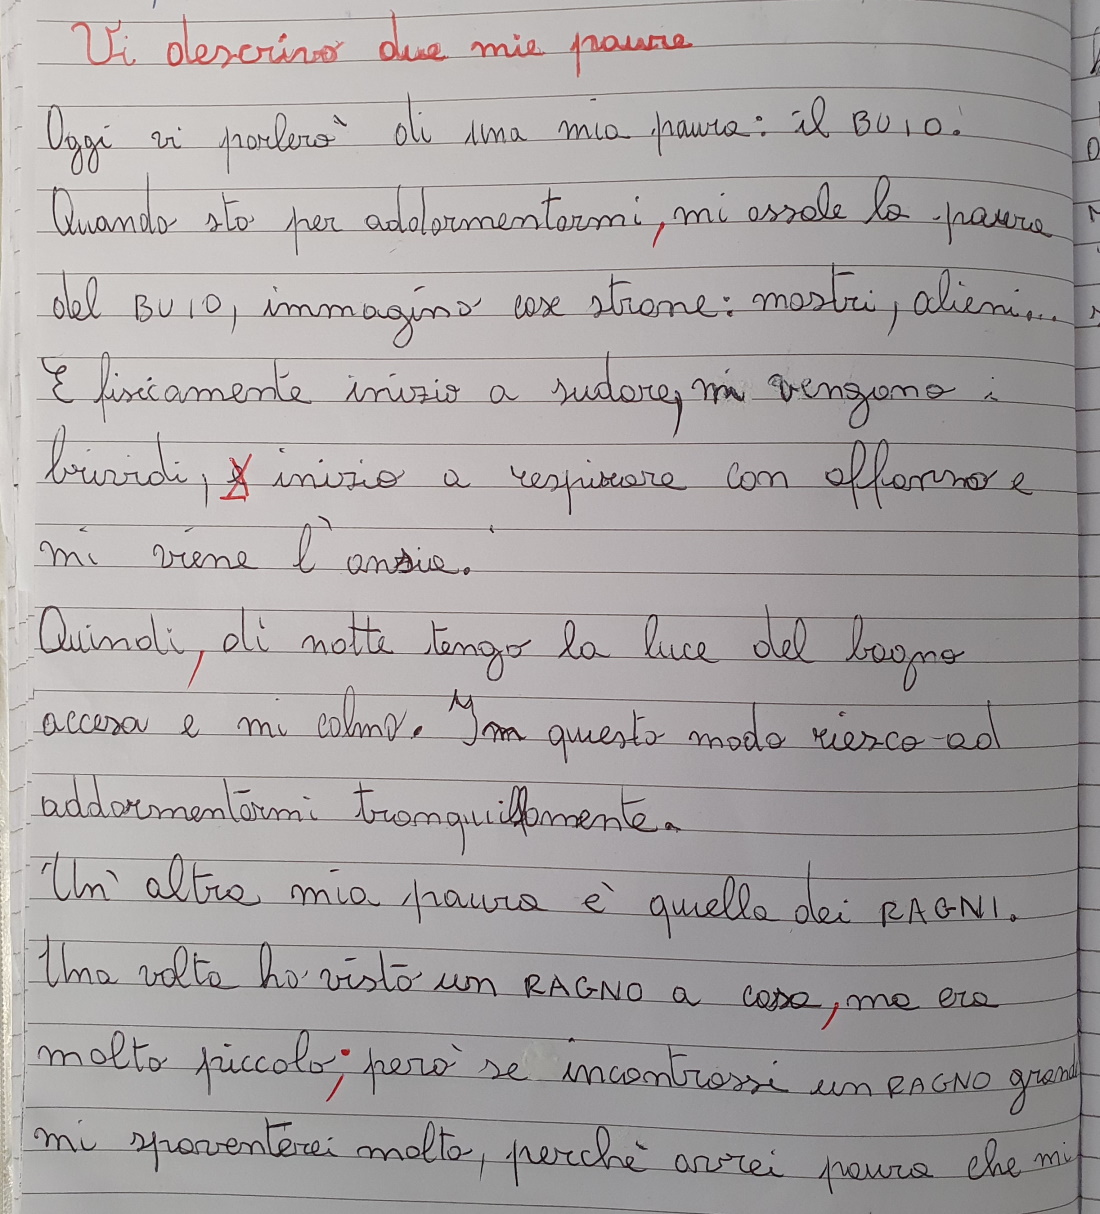 Vi descrivo due mie paure
Oggi vi parlerò di una mia paura: il BUIO.
Quando sto per addormentarmi, mi assale la paura
del BUIO, immagino cose strane: mostri, alieni...
E fisicamente inizio a sudare, mi vengono i
brividi, inizio a respirare con affanno e
mi viene l'ansia.
Quindi, di notte tengo la luce del bagno
accesa e mi calmo. In questo modo riesco ad
addormentarmi tranquillamente.
Un'altra mia paura è quella dei RAGNI.
Una volta ho visto un RAGNO a casa, ma era
molto piccolo; però se incontrassi un RAGNO grand
mi spaventerei molto, perchè avrei paura che mi